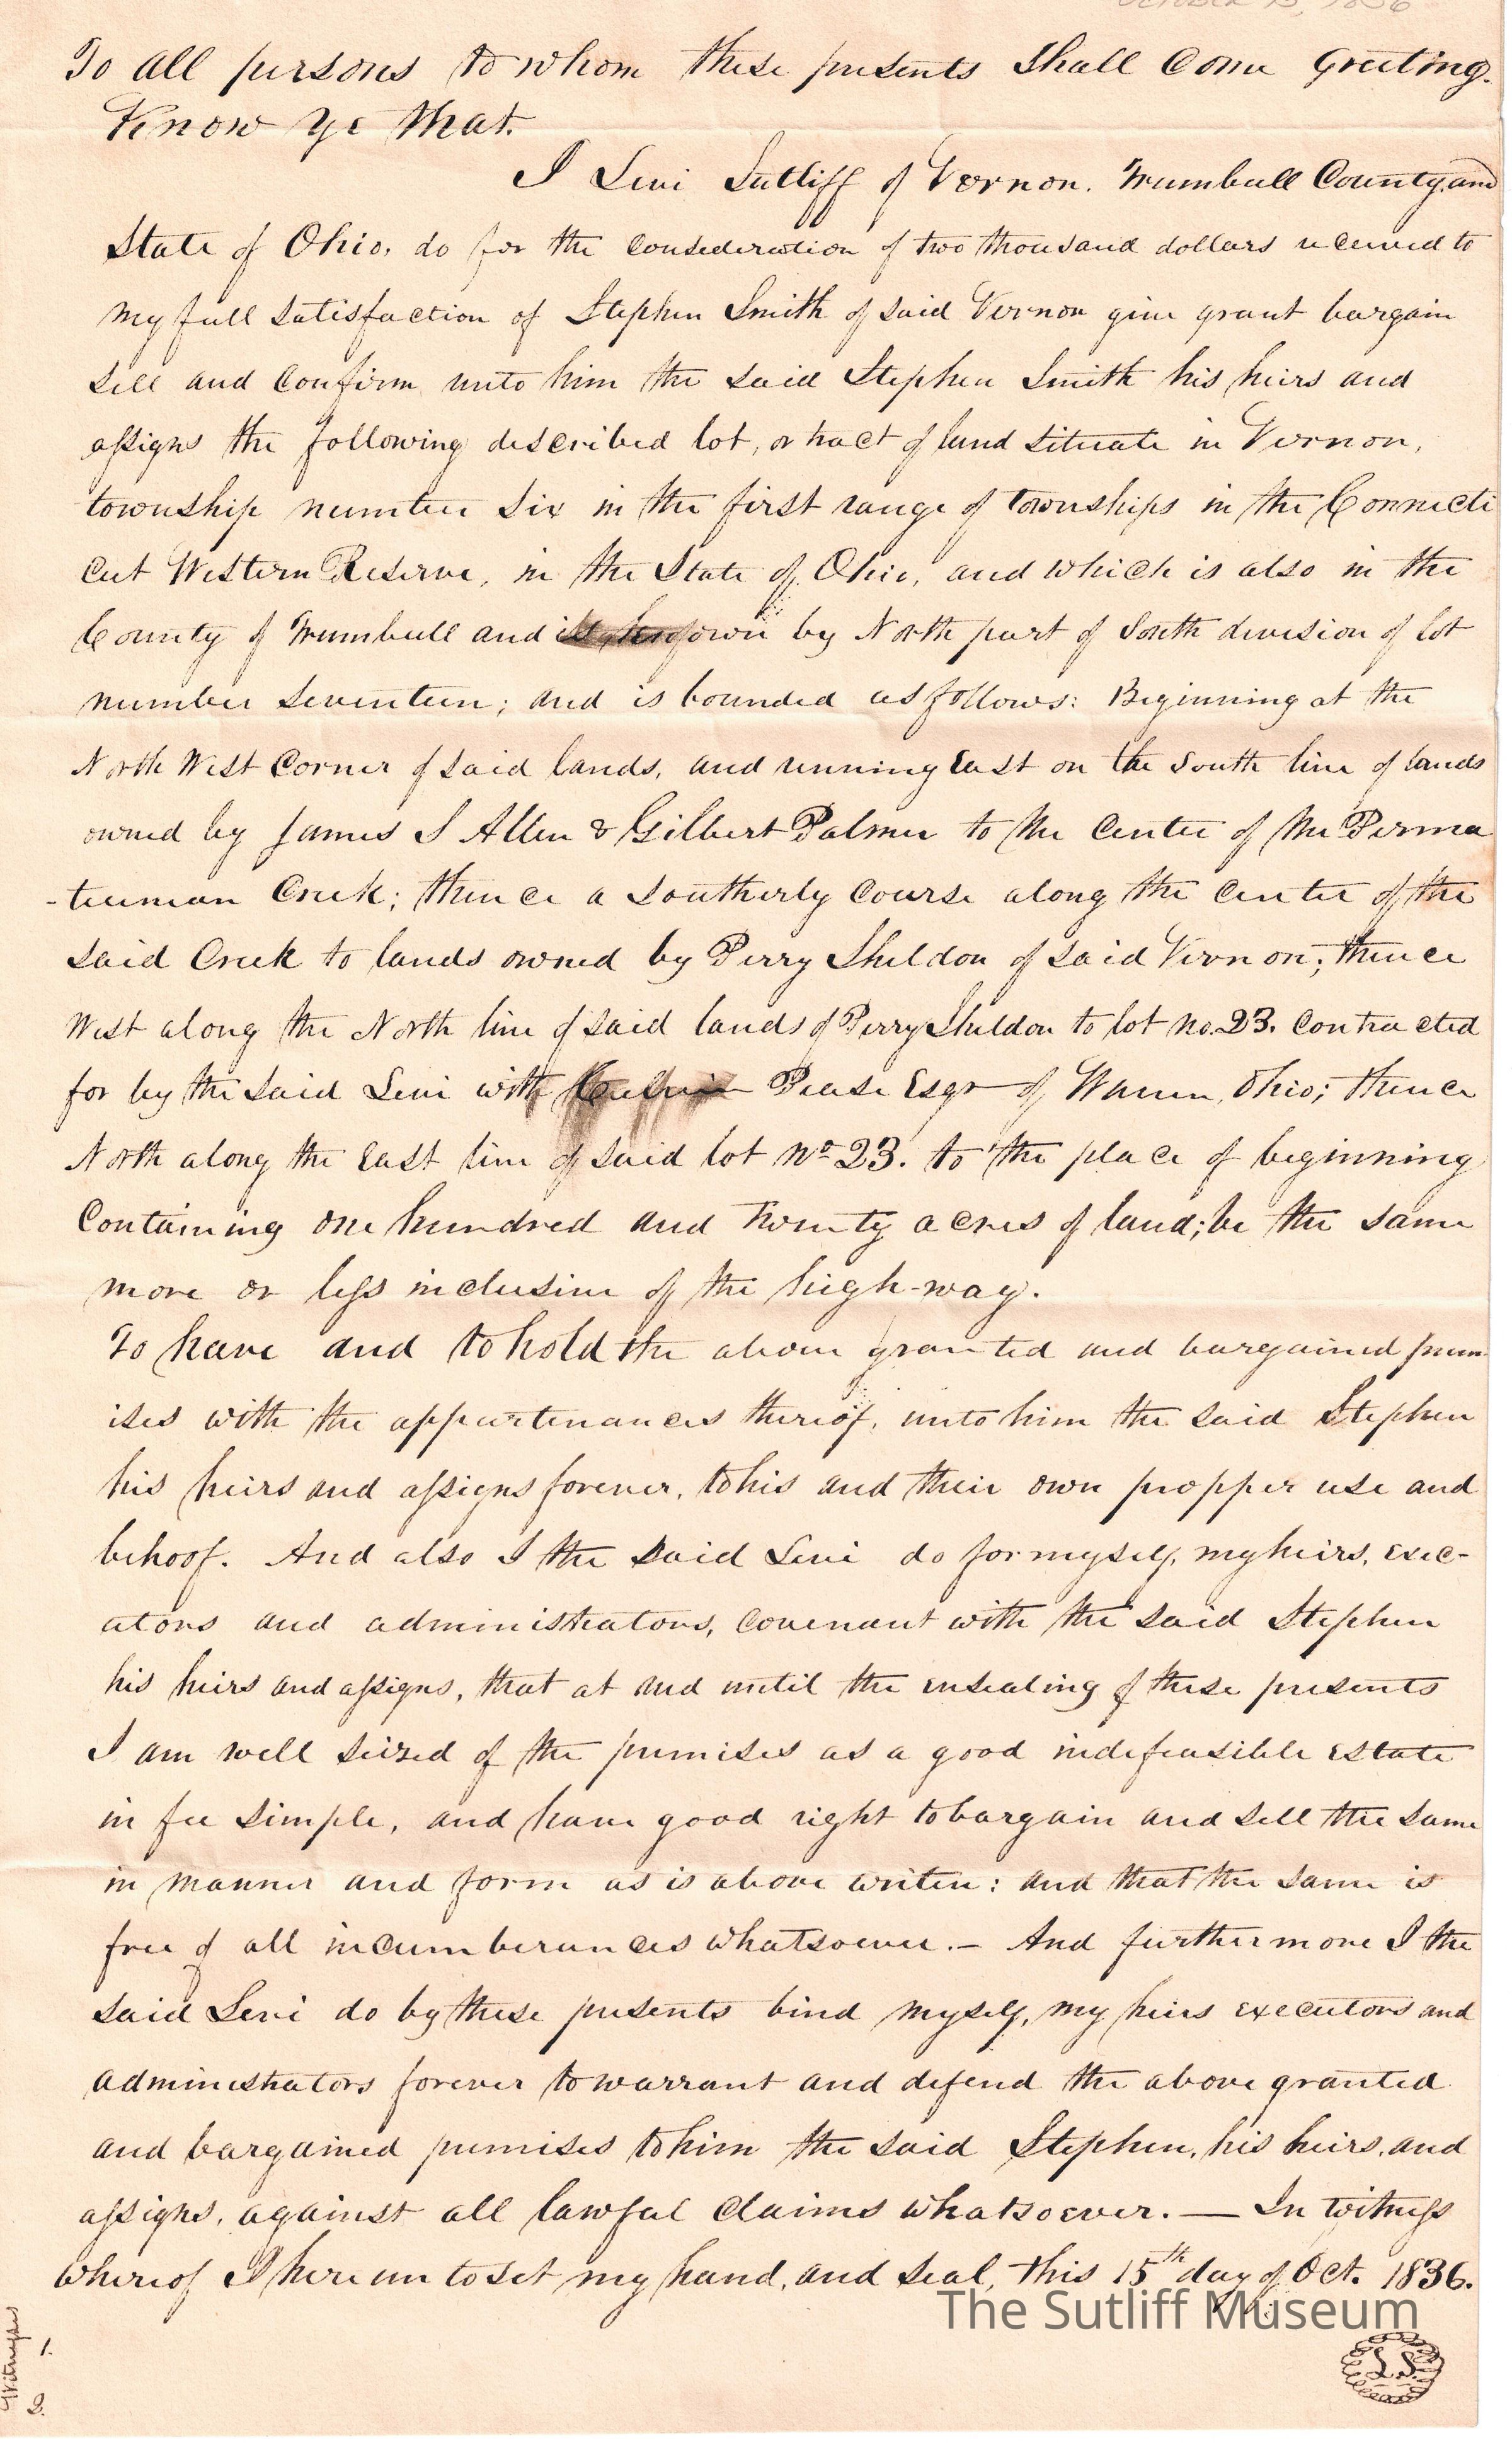 October 15, 1836
To all persons to whom these presents Shall Come Greeting.
Know ye that.
I Levi Sutliff of Vernon. Trumbull County, and
State of Ohio, do for the Consideration of two thousand dollars received to
my full Satisfaction of Stephen Smith of said Vernon give grant bargain
sell and Confirm unto him the said Stephen Smith his heirs and
assigns the following described lot, or tract of land situate in Vernon,
township number six in the first range of townships in the Connecti
cut Western Reserve, in the State of Ohio, and which is also in the
County of Trumbull and is known by North part of South division of lot
number seventeen; and is bounded as follows: Beginning at the
North West Corner of said lands, and running East on the South line of lands
owned by James S Allen & Gilbert Palmer to the Center of the Perma
-tuman Creek; thence a Southerly Course along the Center of the
said Creek to lands owned by Perry Sheldon of said Vernon; thence
West along the North line of said lands of Perry Sheldon to lot no. 23. Contracted
for by the said Levi with Pease Esqr of Warren, Ohio; thence
North along the East line of said lot No 23. to the place of beginning
Containing one hundred and twenty acres of land; be the same
more or less inclusive of the high-way.
To have and to hold the above granted and bargained prem
ises with the appurtenances thereof, unto him the said Stephen
his heirs and assigns forever, to his and their own propper use and
behoof. And also I the said Levi do for myself, my heirs, exec-
utors and administrators, Covenant with the said Stephen
his heirs and assigns, that at and until the ensealing of these presents
I am well seized of the premises as a good indefeasible estate
in fee simple, and have good right to bargain and sell the same
in manner and form as is above writen: and that the same is
free of all incumberances whatsoever. – And furthermore I the
said Levi do by these presents bind myself, my heirs executors and
administrators forever to warrant and defend the above granted
and bargained premises to him the said Stephen, his heirs, and
assigns, against all lawful Claims whatsoever. — In witness
whereof I hereunto set my hand, and seal, this 15th day of Oct. 1836.
The Sutliff Museum
L.S.
Witnesses
1.
2.